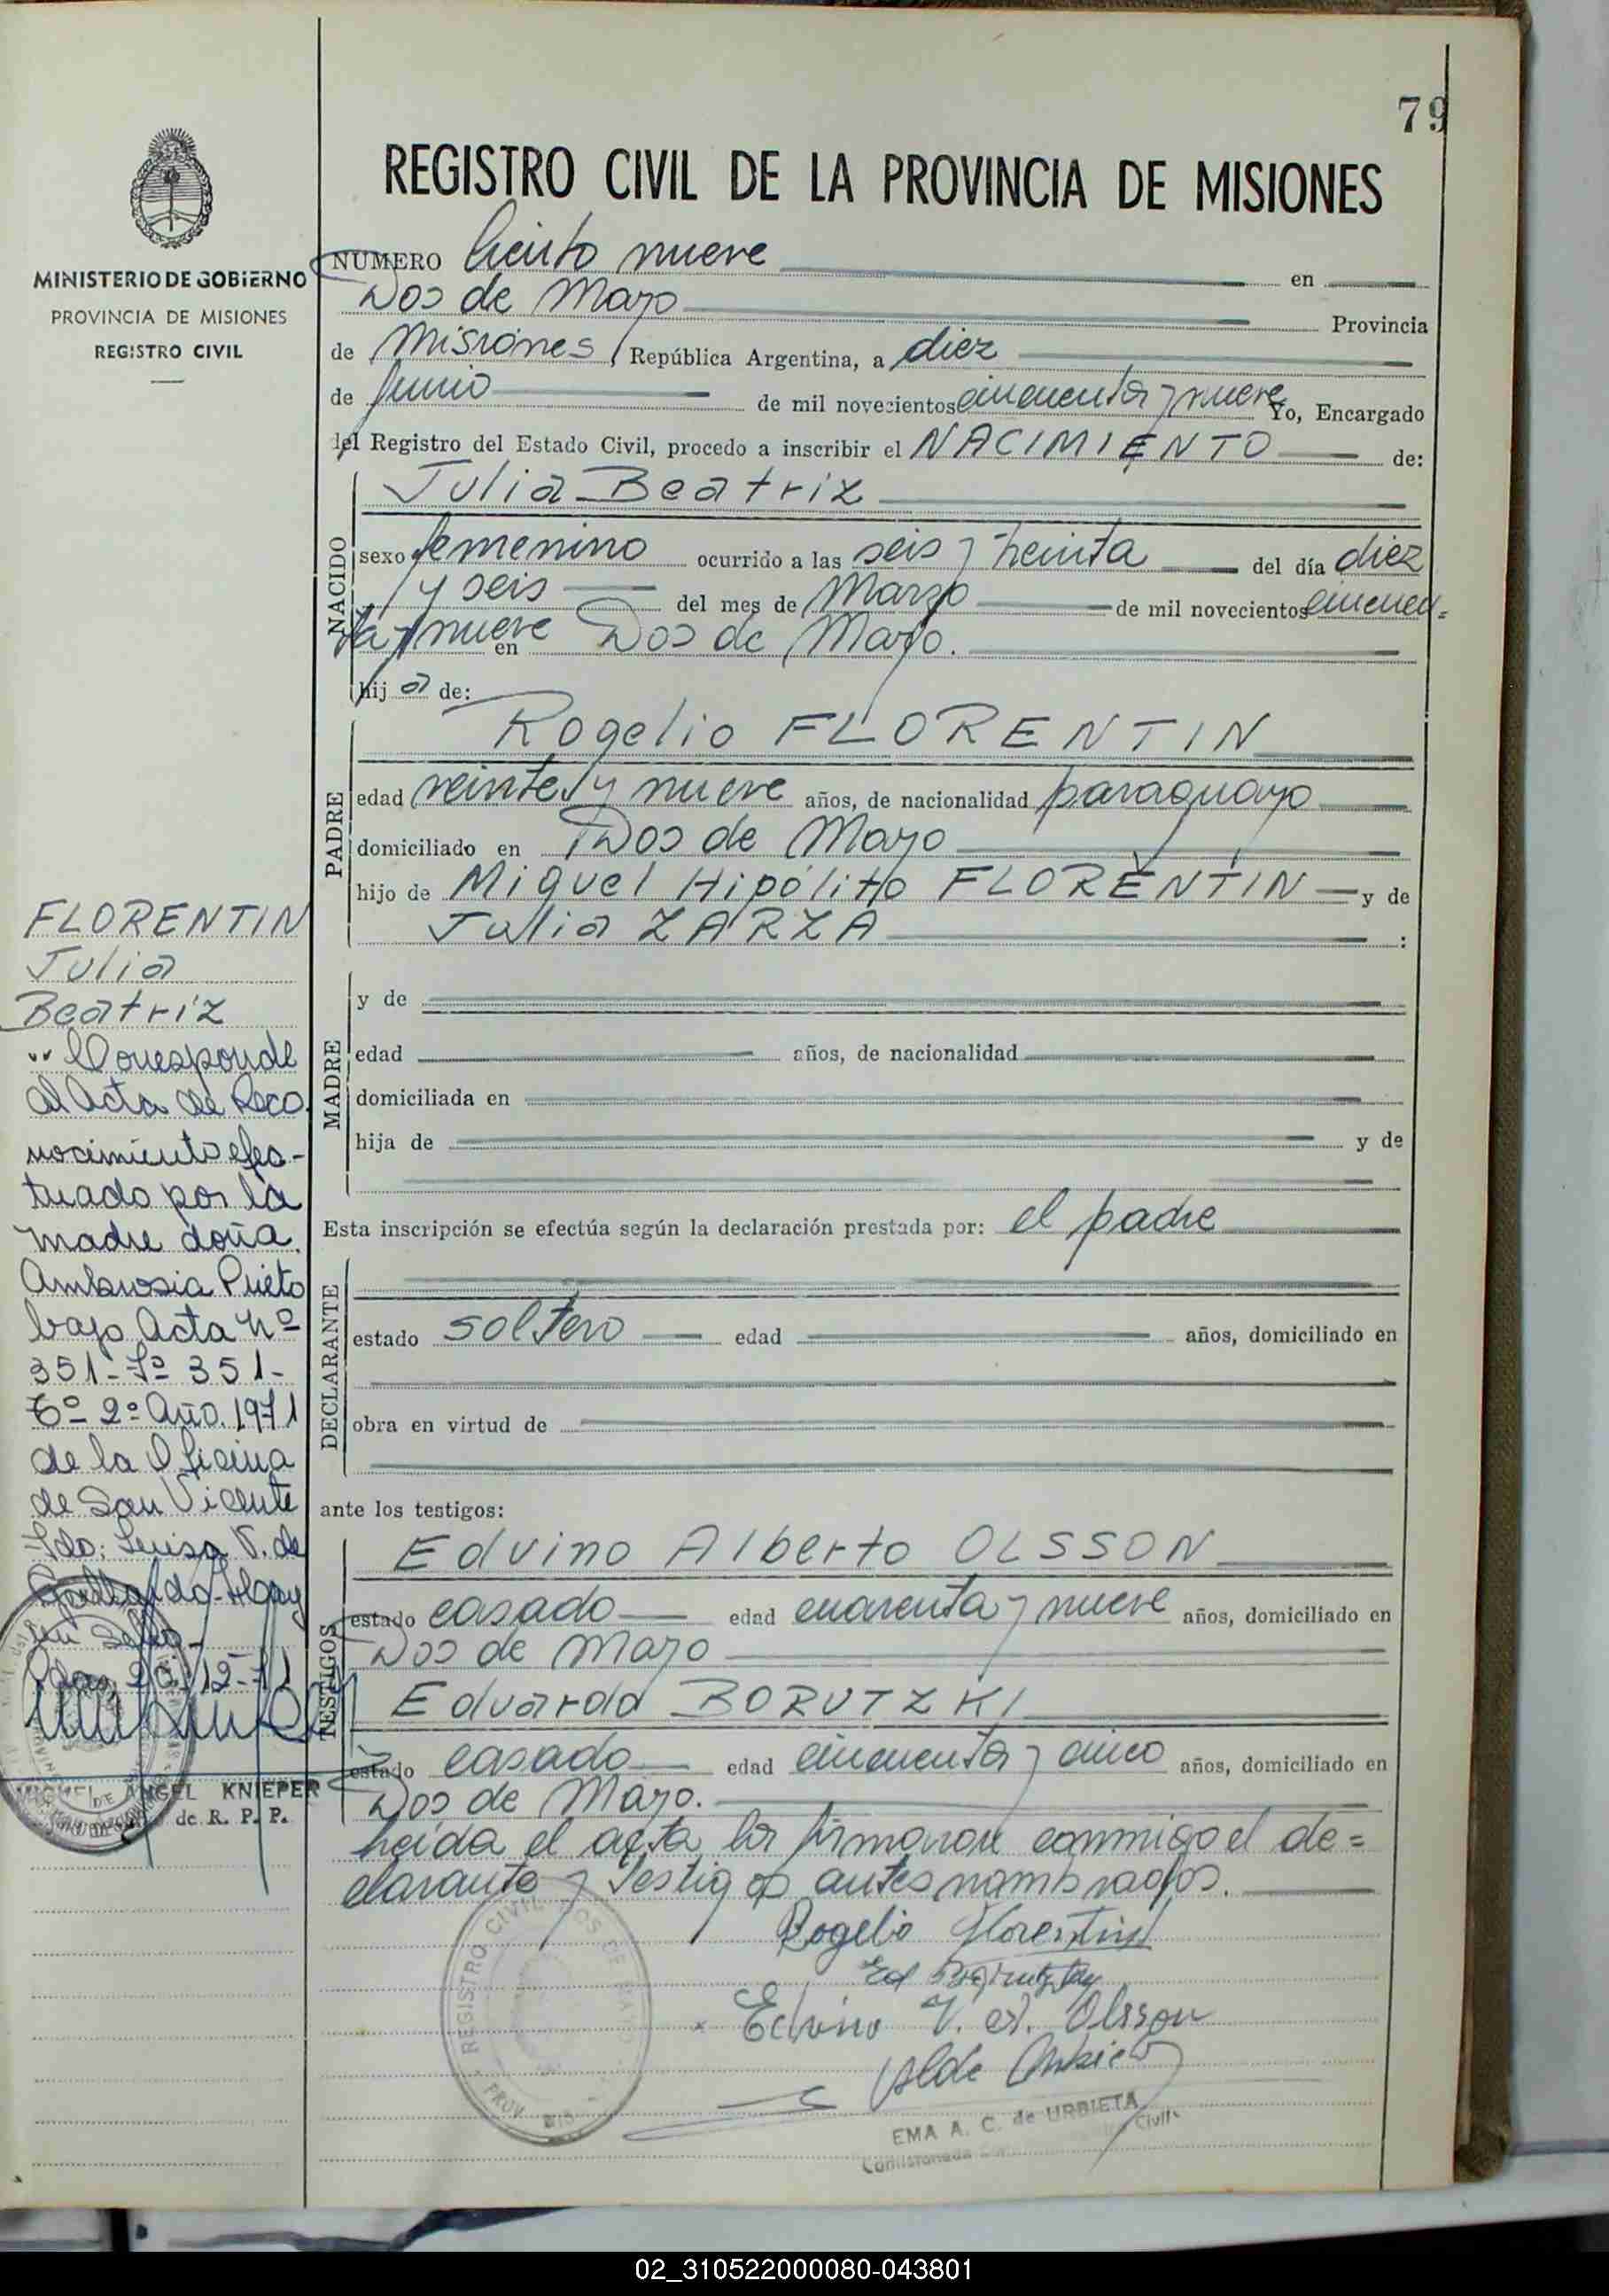 79
REGISTRO CIVIL DE LA PROVINCIA DE MISIONES
MINISTERIO DE GOBIERNO
PROVINCIA DE MISIONES
REGISTRO CIVIL
NUMERO Ciento nueve en
Dos de Mayo Provincia
de Misiones, República Argentina, a diez
de Junio de mil novecientos cincuenta y nueve Yo, Encargado
del Registro del Estado Civil, procedo a inscribir el NACIMIENTO de:
NACIDO
Julia Beatriz
sexo femenino ocurrido a las seis y treinta del día diez
y seis del mes de Marzo de mil novecientos cincuen=
ta y nueve en Dos de Mayo.
hij a de:
PADRE
Rogelio FLORENTIN
edad veinte y nueve años, de nacionalidad paraguayo
domiciliado en Dos de Mayo
hijo de Miguel Hipólito FLORENTIN y de
Julia ZARZA :
MADRE
y de
edad años, de nacionalidad
domiciliada en
hija de y de
Esta inscripción se efectúa según la declaración prestada por: el padre
DECLARANTE
estado soltero edad años, domiciliado en
obra en virtud de
ante los testigos:
TESTIGOS
Edvino Alberto OLSSON
estado casado edad cuarenta y nueve años, domiciliado en
Dos de Mayo
Eduardo BORUTZKI
estado casado edad cincuenta y cinco años, domiciliado en
Dos de Mayo.
Leida el acta la firmaron conmigo el de=
clarante y testigos antes nombrados.
Rogelio Florentin
Edvino V. A. Olsson
EMA A. C. de URBIETA
REGISTRO CIVIL DOS DE MAYO
PROV. MIS.
FLORENTIN
Julia
Beatríz
" Corresponde
al Acta de Reco
nocimiento efec-
tuado por la
madre doña
Ambrosia Prieto
bajo Acta Nº
351- Fº 351-
Tº 2º Año 1971
de la Oficina
de San Vicente
Fdo: Luisa V. de
Gallardo. Hay
un Sello-
Pdas, 20/12-71
MIGUEL ANGEL KNIEPER
de R. P. P.
02_310522000080-043801